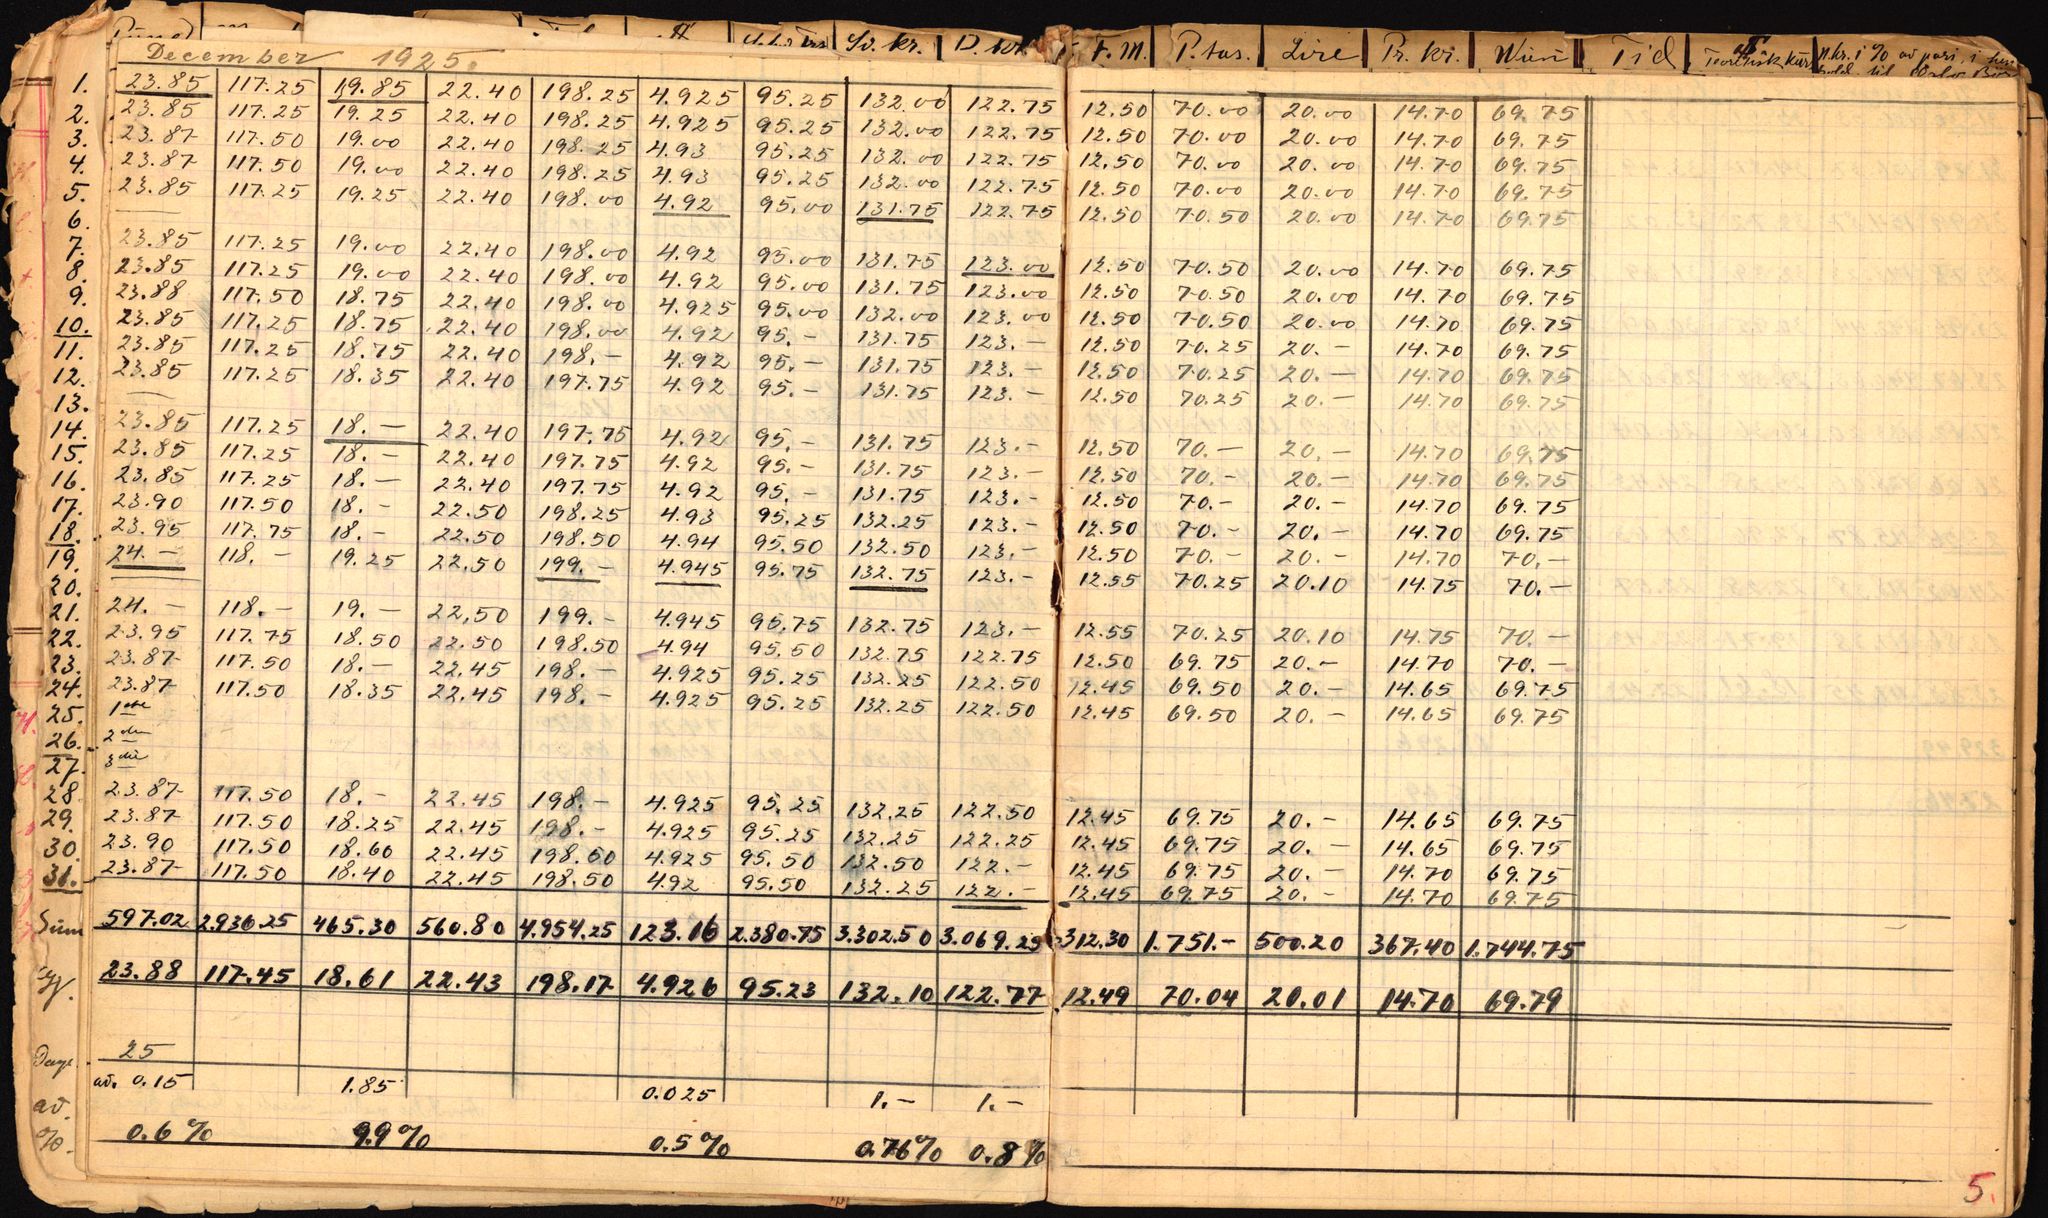 Pund Sv. kr. D. kr. F. M. P.tas. Lire Pr. kr. Wien Tid Teoretisk kurs N.kr. i % av pari, i
December 1925.
1. 23.85 117.25 19.85 22.40 198.25 4.925 95.25 132.00 122.75 12.50 70.00 20.00 14.70 69.75
2. 23.85 117.25 19.25 22.40 198.25 4.925 95.25 132.00 122.75 12.50 70.00 20.00 14.70 69.75
3. 23.87 117.50 19.00 22.40 198.25 4.93 95.25 132.00 122.75 12.50 70.00 20.00 14.70 69.75
4. 23.87 117.50 19.00 22.40 198.25 4.93 95.25 132.00 122.75 12.50 70.00 20.00 14.70 69.75
5. 23.85 117.25 19.25 22.40 198.00 4.92 95.00 131.75 122.75 12.50 70.50 20.00 14.70 69.75
6.
7. 23.85 117.25 19.00 22.40 198.00 4.92 95.00 131.75 123.00 12.50 70.50 20.00 14.70 69.75
8. 23.85 117.25 19.00 22.40 198.00 4.92 95.00 131.75 123.00 12.50 70.50 20.00 14.70 69.75
9. 23.88 117.50 18.75 22.40 198.00 4.925 95.00 132.00 123.00 12.50 70.50 20.00 14.70 69.75
10. 23.85 117.25 18.75 22.40 198.00 4.92 95.- 131.75 123.- 12.50 70.25 20.- 14.70 69.75
11. 23.85 117.25 18.75 22.40 198.- 4.92 95.- 131.75 123.- 12.50 70.25 20.- 14.70 69.75
12. 23.85 117.25 18.35 22.40 197.75 4.92 95.- 131.75 123.- 12.50 70.25 20.- 14.70 69.75
13.
14. 23.85 117.25 18.- 22.40 197.75 4.92 95.- 131.75 123.- 12.50 70.- 20.- 14.70 69.75
15. 23.85 117.25 18.- 22.40 197.75 4.92 95.- 131.75 123.- 12.50 70.- 20.- 14.70 69.75
16. 23.85 117.25 18.- 22.40 197.75 4.92 95.- 131.75 123.- 12.50 70.- 20.- 14.70 69.75
17. 23.90 117.50 18.- 22.50 198.25 4.93 95.25 132.25 123.- 12.50 70.- 20.- 14.70 69.75
18. 23.95 117.75 18.- 22.50 198.50 4.94 95.50 132.50 123.- 12.50 70.- 20.- 14.70 70.-
19. 24.- 118.- 19.25 22.50 199.- 4.945 95.75 132.75 123.- 12.55 70.25 20.10 14.75 70.-
20.
21. 24.- 118.- 19.- 22.50 199.- 4.945 95.75 132.75 123.- 12.55 70.25 20.10 14.75 70.-
22. 23.95 117.75 18.50 22.50 198.50 4.94 95.50 132.75 122.75 12.50 69.75 20.- 14.70 70.-
23. 23.87 117.50 18.- 22.45 198.- 4.925 95.25 132.25 122.50 12.45 69.50 20.- 14.65 69.75
24. 23.87 117.50 18.35 22.45 198.- 4.925 95.25 132.25 122.50 12.45 69.50 20.- 14.65 69.75
25. 1ste
26. 2den
27. 3die
28. 23.87 117.50 18.- 22.45 198.- 4.925 95.25 132.25 122.50 12.45 69.75 20.- 14.65 69.75
29. 23.87 117.50 18.25 22.45 198.- 4.925 95.25 132.25 122.25 12.45 69.75 20.- 14.65 69.75
30. 23.90 117.50 18.60 22.45 198.50 4.925 95.50 132.50 122.- 12.45 69.75 20.- 14.70 69.75
31. 23.87 117.50 18.40 22.45 198.50 4.92 95.50 132.25 122.- 12.45 69.75 20.- 14.70 69.75
Sum 597.02 2.936.25 465.30 560.80 4.954.25 123.16 2.380.75 3.302.50 3.069.25 312.30 1.751.- 500.20 367.40 1.744.75
Gj. 23.88 117.45 18.61 22.43 198.17 4.926 95.23 132.10 122.77 12.49 70.04 20.01 14.70 69.79
Dage 25
av. 0.15 1.85 0.025 1.- 1.-
av.
%. 0.6% 9.9% 0.5% 0.76% 0.8%
5.